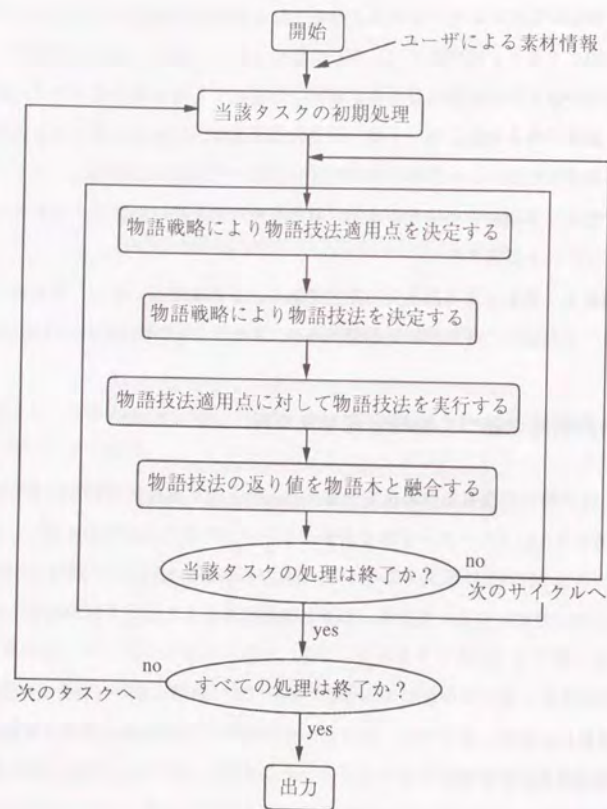 開始
ユーザによる素材情報
当該タスクの初期処理
物語戦略により物語技法適用点を決定する
物語戦略により物語技法を決定する
物語技法適用点に対して物語技法を実行する
物語技法の返り値を物語木と融合する
当該タスクの処理は終了か?
no
次のサイクルへ
yes
no
すべての処理は終了か?
次のタスクへ
yes
出力